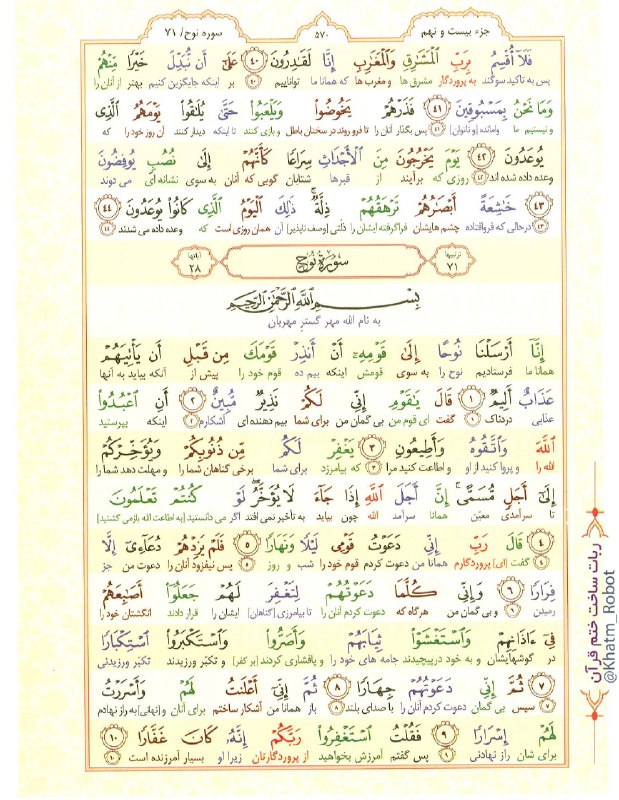 جزء بیست و نهم
۵۷۰
سوره نوح/ ۷۱
فَلَآ أُقْسِمُ بِرَبِّ ٱلْمَشَـٰرِقِ وَٱلْمَغَـٰرِبِ إِنَّا لَقَـٰدِرُونَ ۴۰ عَلَىٰٓ أَن نُّبَدِّلَ خَيْرًا مِّنْهُمْ
پس به تاکید سوگند به پروردگار مشرق ها و مغرب ها که همانا ما تواناییم ۴۰ بر اینکه جایگزین کنیم بهتر از آنان را
وَمَا نَحْنُ بِمَسْبُوقِينَ ۴۱ فَذَرْهُمْ يَخُوضُوا۟ وَيَلْعَبُوا۟ حَتَّىٰ يُلَـٰقُوا۟ يَوْمَهُمُ ٱلَّذِى
و نیستیم ما وامانده [و ناتوان] ۴۱ پس بگذار آنان را تا فرو روند در سخنان باطل و بازی کنند تا اینکه دیدار کنند آن روز خود را که
يُوعَدُونَ ۴۲ يَوْمَ يَخْرُجُونَ مِنَ ٱلْأَجْدَاثِ سِرَاعًا كَأَنَّهُمْ إِلَىٰ نُصُبٍ يُوفِضُونَ
وعده داده شده اند ۴۲ روزی که برآیند از قبرها شتابان گویی که آنان به سوی نشانه ای می دوند
۴۳ خَـٰشِعَةً أَبْصَـٰرُهُمْ تَرْهَقُهُمْ ذِلَّةٌ ۚ ذَٰلِكَ ٱلْيَوْمُ ٱلَّذِى كَانُوا۟ يُوعَدُونَ ۴۴
۴۳ درحالی که فروافتاده چشم هایشان فراگرفته ایشان را ذلتی [وصف ناپذیر] آن همان روزی است که وعده داده می شدند ۴۴
ترتیبها ۷۱ سورة نوح آیاتها ۲۸
بِسْمِ ٱللَّهِ ٱلرَّحْمَـٰنِ ٱلرَّحِيمِ
به نام الله مهر گستر مهربان
إِنَّآ أَرْسَلْنَا نُوحًا إِلَىٰ قَوْمِهِۦٓ أَنْ أَنذِرْ قَوْمَكَ مِن قَبْلِ أَن يَأْتِيَهُمْ
همانا ما فرستادیم نوح را به سوی قومش اینکه بیم ده قوم خود را پیش از آنکه بیاید به آنها
عَذَابٌ أَلِيمٌ ۱ قَالَ يَـٰقَوْمِ إِنِّى لَكُمْ نَذِيرٌ مُّبِينٌ ۲ أَنِ ٱعْبُدُوا۟
عذابی دردناک ۱ گفت ای قوم من بی گمان من برای شما بیم دهنده ای آشکارم ۲ اینکه بپرستید
ٱللَّهَ وَٱتَّقُوهُ وَأَطِيعُونِ ۳ يَغْفِرْ لَكُم مِّن ذُنُوبِكُمْ وَيُؤَخِّرْكُمْ
الله را و پروا کنید از او و اطاعت کنید مرا ۳ که بیامرزد برای شما برخی گناهان شما را و مهلت دهد شما را
إِلَىٰٓ أَجَلٍ مُّسَمًّى ۚ إِنَّ أَجَلَ ٱللَّهِ إِذَا جَآءَ لَا يُؤَخَّرُ ۖ لَوْ كُنتُمْ تَعْلَمُونَ
تا سرآمدی معیّن همانا سرآمد الله چون بیاید به تأخیر نمی افتد اگر می دانستید [به اطاعت اله بازمی گشتید]
۴ قَالَ رَبِّ إِنِّى دَعَوْتُ قَوْمِى لَيْلًا وَنَهَارًا ۵ فَلَمْ يَزِدْهُمْ دُعَآءِىٓ إِلَّا
۴ گفت [ای] پروردگارم همانا من دعوت کردم قوم خود را شب و روز ۵ پس نیفزود آنان را دعوت من جز
فِرَارًا ۶ وَإِنِّى كُلَّمَا دَعَوْتُهُمْ لِتَغْفِرَ لَهُمْ جَعَلُوٓا۟ أَصَـٰبِعَهُمْ
رمیدن ۶ و بی گمان من هرگاه که دعوت کردم آنان را تا بیامرزی [گناهان] ایشان را قرار دادند انگشتان خود را
فِىٓ ءَاذَانِهِمْ وَٱسْتَغْشَوْا۟ ثِيَابَهُمْ وَأَصَرُّوا۟ وَٱسْتَكْبَرُوا۟ ٱسْتِكْبَارًا
در گوشهایشان و به خود درپیچیدند جامه های خود را و پافشاری کردند [بر کفر] و تکبّر ورزیدند تکبّر ورزیدنی
۷ ثُمَّ إِنِّى دَعَوْتُهُمْ جِهَارًا ۸ ثُمَّ إِنِّىٓ أَعْلَنتُ لَهُمْ وَأَسْرَرْتُ
۷ سپس بی گمان دعوت کردم آنان را با صدای بلند ۸ باز همانا من آشکار ساختم برای آنان و [نهانی] به راز نهادم
لَهُمْ إِسْرَارًا ۹ فَقُلْتُ ٱسْتَغْفِرُوا۟ رَبَّكُمْ إِنَّهُۥ كَانَ غَفَّارًا ۱۰
برای شان راز نهادنی ۹ پس گفتم آمرزش بخواهید از پروردگارتان زیرا او بسیار آمرزنده است ۱۰
ربات ساخت ختم قرآن
@Khatm_Robot